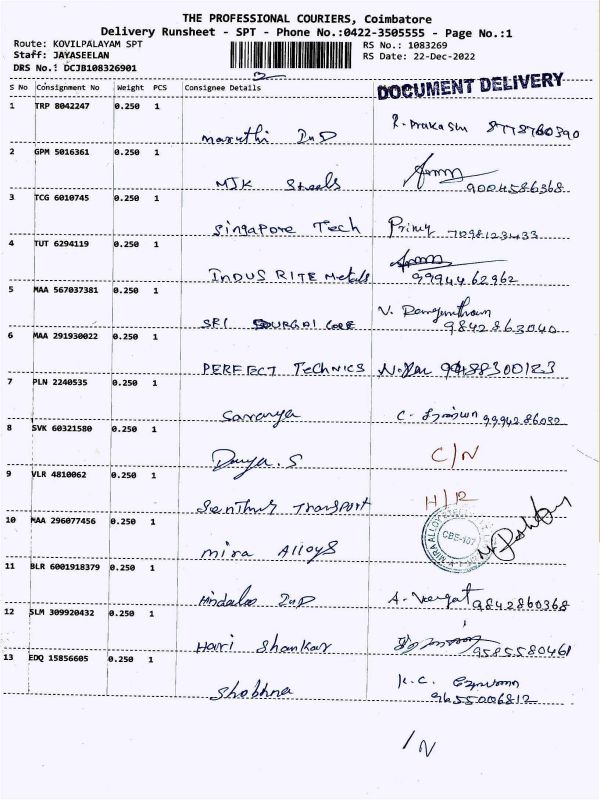 THE PROFESSIONAL COURIERS, Coimbatore
Delivery Runsheet - SPT - Phone No.:0422-3505555 - Page No.:1
Route: KOVILPALAYAM SPT
Staff: JAYASEELAN
DRS No.: DCJB108326901
RS No.: 1083269
RS Date: 22-Dec-2022
2
DOCUMENT DELIVERY
S No Consignment No Weight PCS Consignee Details
1 TRP 8042247 0.250 1
Maruthi InD R. Prakash 8778760390
2 GPM 5016361 0.250 1
MJK Steels 9004586368
3 TCG 6010745 0.250 1
Singapore Tech Priny 7098123433
4 TUT 6294119 0.250 1
INDUS RITE Metals 9994462962
5 MAA 567037381 0.250 1
SRI Core V. 9842863040
6 MAA 291930022 0.250 1
PERFECT TECHNICS
7 PLN 2240535 0.250 1
Saranya C. 9994286032
8 SVK 60321580 0.250 1
Divya. S C/N
9 VLR 4810062 0.250 1
Senthur Transport H/R
10 MAA 296077456 0.250 1
Mira Alloys CBE-107
11 BLR 6001918379 0.250 1
Hindalco InD A. 9842860368
12 SLM 309920432 0.250 1
Hari Shankar 9585580461
13 EDQ 15856605 0.250 1
Shobhna K.C. 9655006812
/N